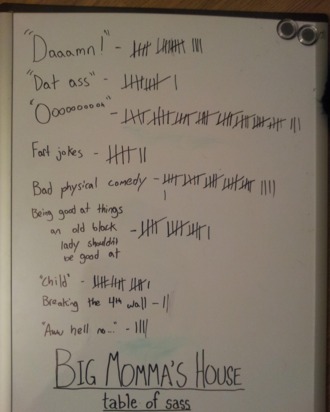 "Daaamn!" -
"Dat ass" -
"Ooooooooooo" -
Fart jokes -
Bad physical comedy -
Being good at things
an old black -
lady shouldn't
be good at
"Child" -
Breaking the 4th wall -
"Aww hell no..." -
BIG MOMMA'S HOUSE
table of sass